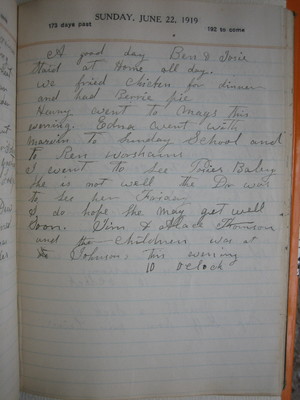 SUNDAY, JUNE 22, 1919
173 days past 192 to come
A good day Ben & Josie
Staid at Home all day.
We fried Chicken for dinner
and had Berrie pie
Henry went to Mays this
evning. Edna went with
to Sunday School and
to Ben
I went to see Baby
she is not well the Dr was
to see her Friday
I do hope she may get well
Soon. Jim &
and the Children was at
Johnsons, this evning
10 oclock